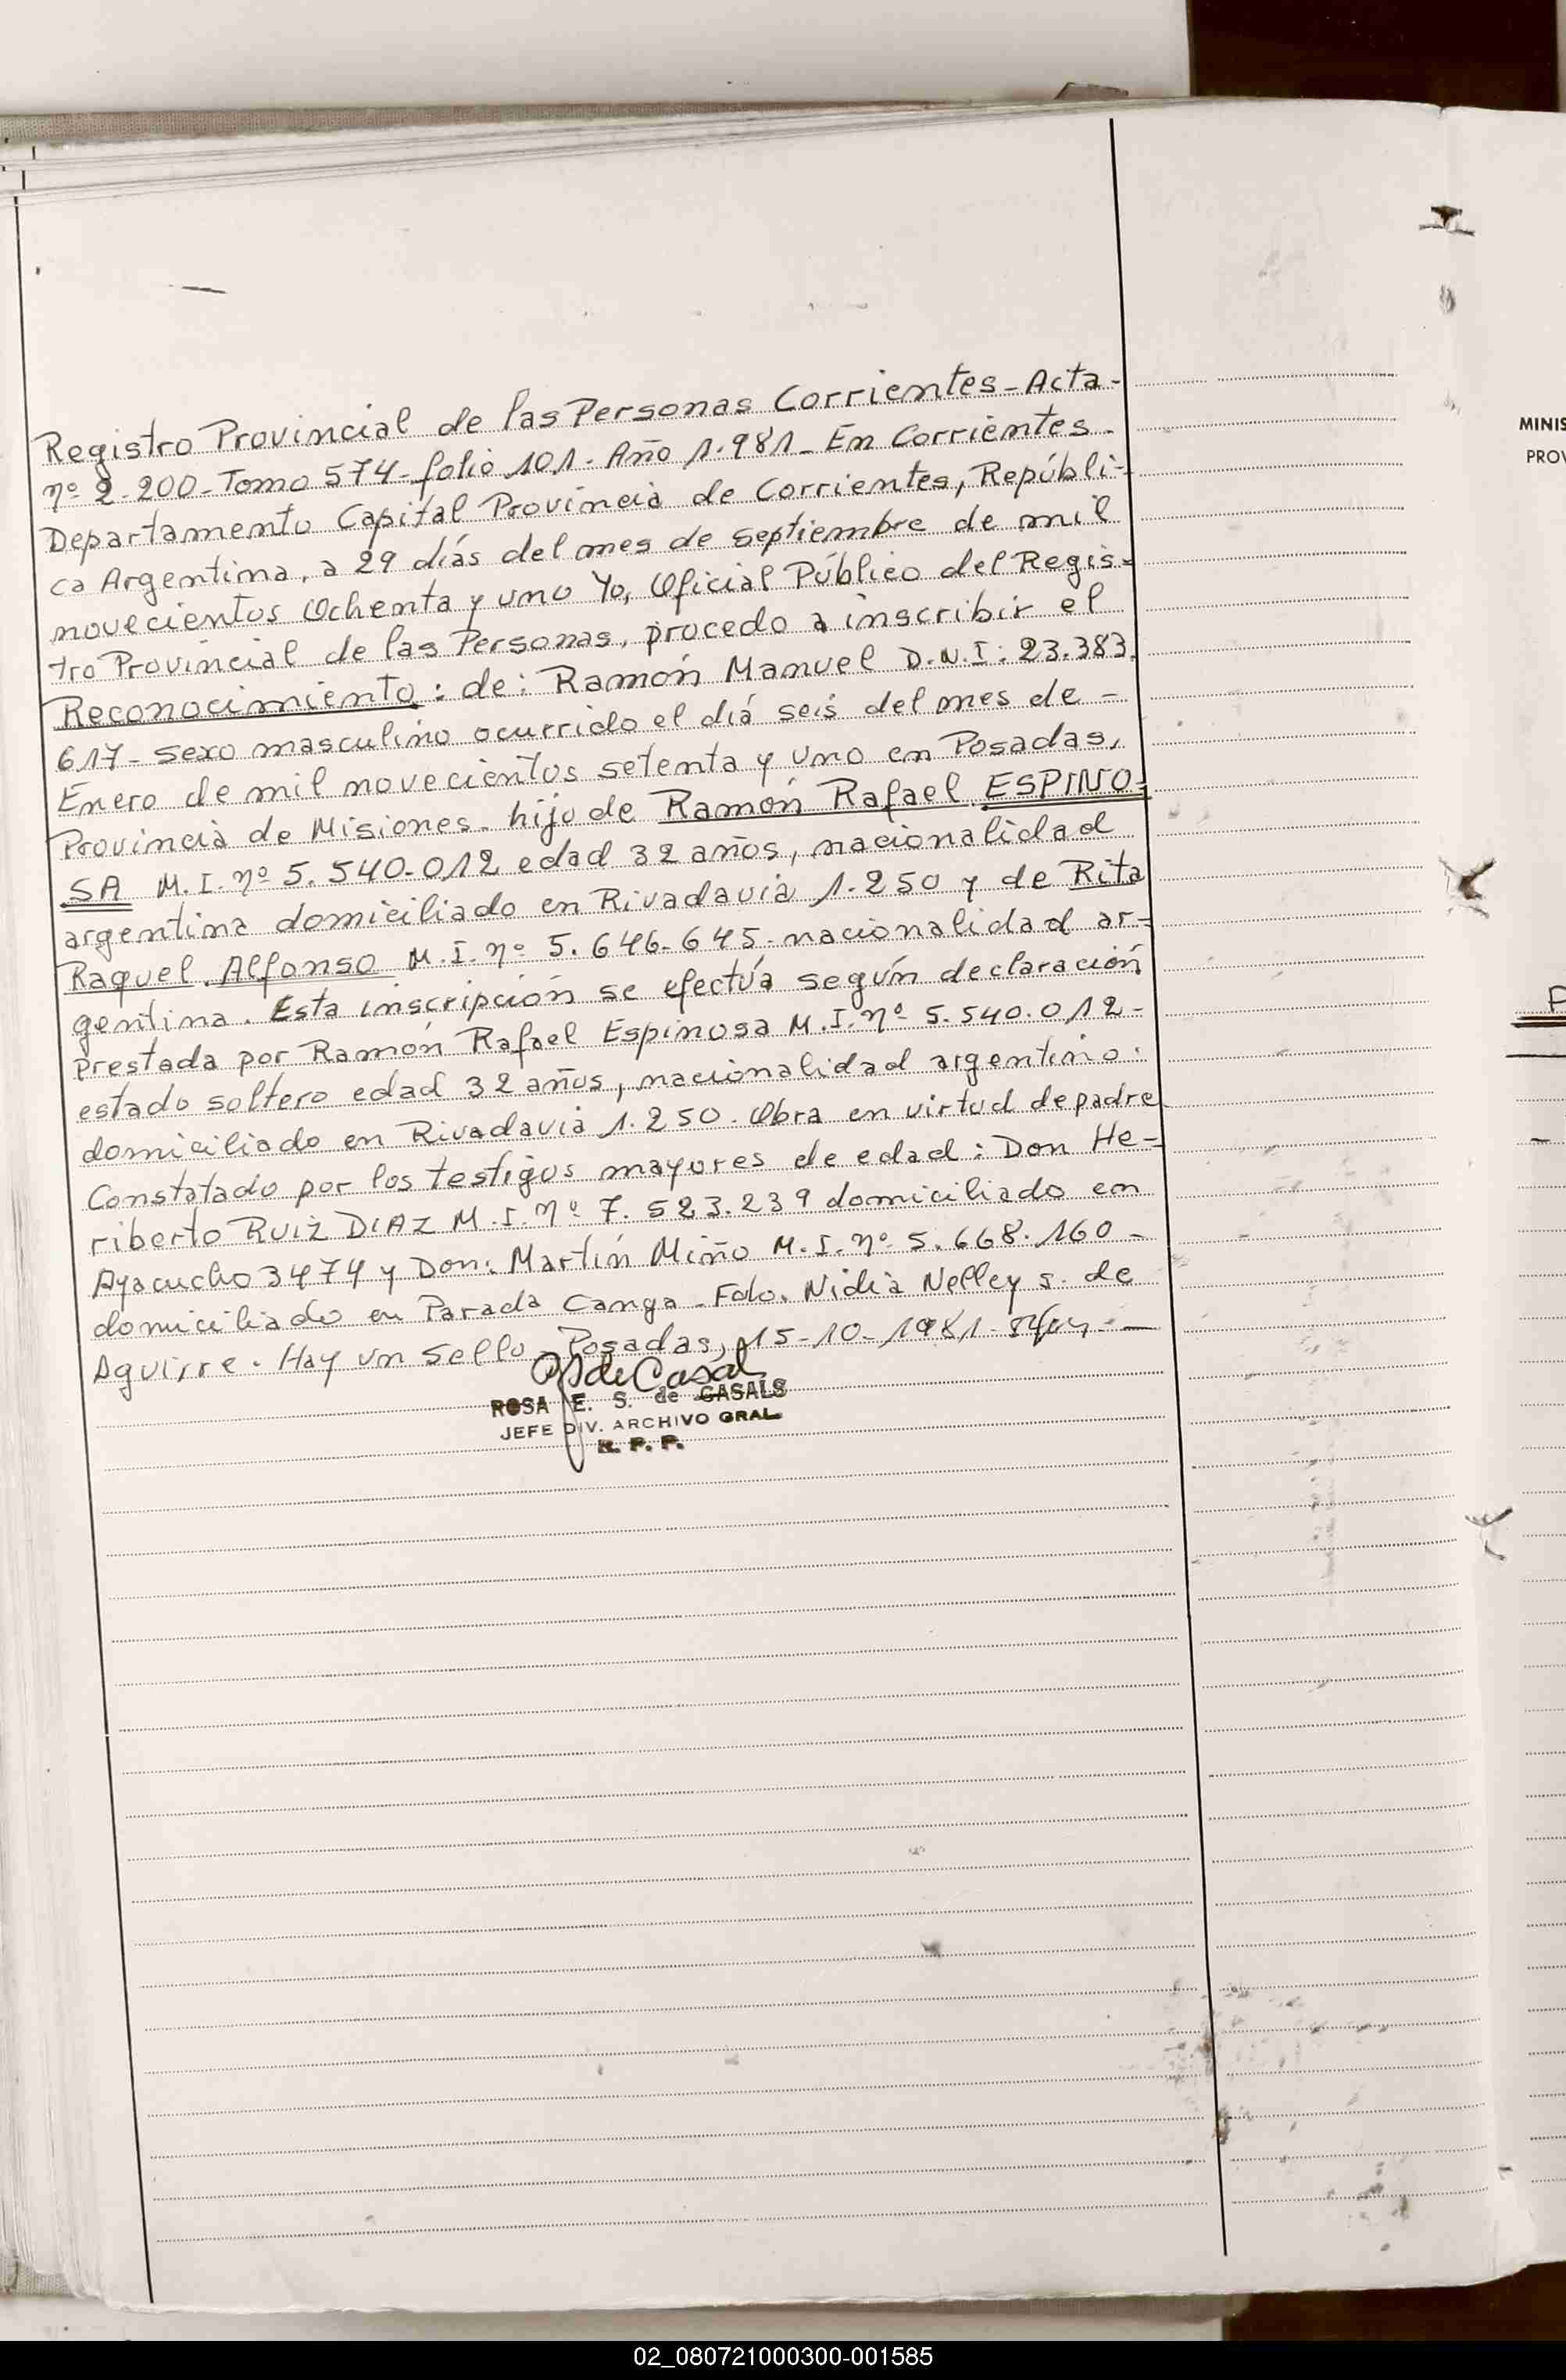 Registro Provincial de las Personas Corrientes-Acta-
nº 2-200-Tomo 574-folio 101. Año 1.981-En Corrientes-
Departamento Capital Provincia de Corrientes, Repúbli-
ca Argentina, a 29 días del mes de septiembre de mil
novecientos ochenta y uno Yo, Oficial Público del Regis-
tro Provincial de las Personas, procedo a inscribir el
Reconocimiento: de: Ramón Manuel D.N.I: 23.383.
617- sexo masculino ocurrido el día seis del mes de -
Enero de mil novecientos setenta y uno en Posadas,
Provincia de Misiones- hijo de Ramón Rafael ESPINO-
SA M.I. nº 5.540-012 edad 32 años, nacionalidad
argentina domiciliado en Rivadavia 1.250 y de Rita
Raquel Alfonso M.I. nº 5.646-645-nacionalidad ar-
gentina. Esta inscripción se efectúa según declaración
prestada por Ramón Rafael Espinosa M.I. nº 5.540.012-
estado soltero edad 32 años, nacionalidad argentino.
domiciliado en Rivadavia 1.250. Obra en virtud de padre
Constatado por los testigos mayores de edad: Don He-
riberto RUIZ DIAZ M.I. nº 7.523.239 domiciliado en
Ayacucho 3474 y Don: Martín Miño M.I. nº 5.668.160-
domiciliado en Parada Canga-Fdo. Nidia Nelley s. de
Aguirre. Hay un sello- Posadas, 15-10-1981-
de Casal
ROSA E. S. de CASALS
JEFE DIV. ARCHIVO GRAL.
R. P. P.
MINIS
PROV
02_080721000300-001585